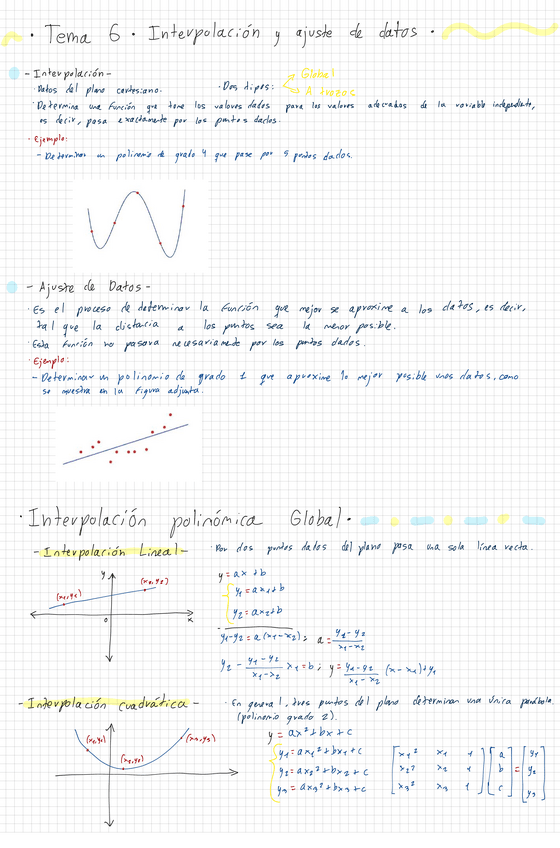 · Tema 6 · Interpolación y ajuste de datos ·
- Interpolación -
· Datos del plano cartesiano. · Dos tipos: Global
A trozos
· Determina una función que tome los valores dados para los valores adecuados de la variable independiente,
es decir, pasa exactamente por los puntos dados.
· Ejemplo:
- Determinar un polinomio de grado 4 que pase por 5 puntos dados.
- Ajuste de Datos -
· Es el proceso de determinar la función que mejor se aproxime a los datos, es decir,
tal que la distacia a los puntos sea la menor posible.
· Esta función no pasara necesariamente por los puntos dados.
· Ejemplo:
- Determinar un polinomio de grado 1 que aproxime lo mejor posible unos datos, como
se muestra en la figura adjunta.
· Interpolación polinómica Global ·
- Interpolación Lineal - · Por dos puntos datos del plano pasa una sola línea recta.
y (x₁,y₁) (x₂,y₂) 0 x
y = ax+b
y₁ = ax₁+b
y₂ = ax₂+b
y₁-y₂ = a(x₁-x₂); a = (y₁-y₂)/(x₁-x₂)
y₂ - (y₁-y₂)/(x₁-x₂) x₁ = b; y = (y₁-y₂)/(x₁-x₂) (x-x₁)+y₁
Interpolación cuadrática - · En general, tres puntos del plano determinan una única parábola.
(polinomio grado 2).
(x₁,y₁) (x₂,y₂) (x₃,y₃)
y = ax²+bx+c
y₁ = ax₁²+bx₁+c
y₂ = ax₂²+bx₂+c
y₃ = ax₃²+bx₃+c
[x₁² x₁ 1] [a] = [y₁]
[x₂² x₂ 1] [b] = [y₂]
[x₃² x₃ 1] [c] = [y₃]